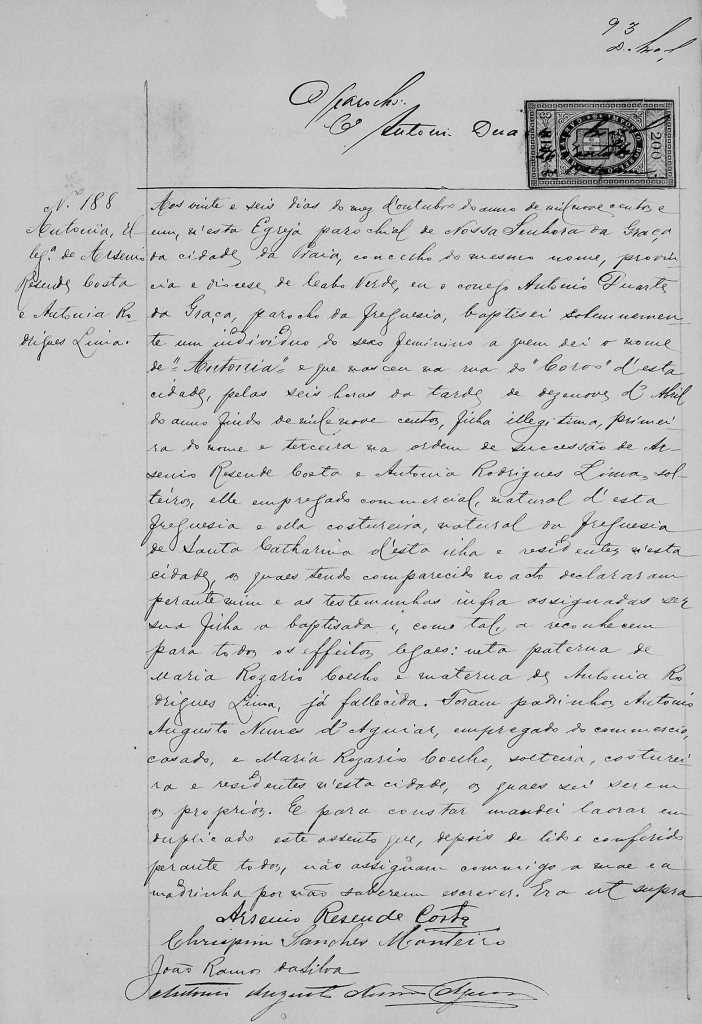 93
O Parocho.
Cº Antonio Dua
200
Nº 188
Antonia, il
legª. de Arsenio
Resende Costa
e Antonia Ro-
drigues Lima.
Aos vinte e seis dias do mez d'outubro do anno de mil nove centos e
um, n'esta Egreja parochial de Nossa Senhora da Graça
da cidade da Praia, concelho do mesmo nome, provin-
cia e diocese de Cabo Verde, eu o conego Antonio Duarte
da Graça, parocho da freguesia, baptisei solemnemen-
te um individuo do sexo feminino a quem dei o nome
de "Antonia" e que nasceu na rua do "Corvo" d'esta
cidade, pelas seis horas da tarde de dezenove d'Abril
do anno findo de mil nove centos, filha illegitima, primei-
ra do nome e terceira na ordem de successão de Ar-
senio Resende Costa e Antonia Rodrigues Lima, sol-
teiros, elle empregado commercial, natural d'esta
freguesia e ella costureira, natural da freguesia
de Santa Catharina d'esta ilha e residentes n'esta
cidade, os quaes tendo comparecido no acto declararam
perante mim e as testemunhas infra assignadas ser
sua filha a baptisada e, como tal, a reconhecem
para todos os effeitos legaes: neta paterna de
Maria Rozario Coelho e materna de Antonia Ro-
drigues Lima, já fallecida. Foram padrinhos Antonio
Augusto Nunes d'Aguiar, empregado do commercio,
casado, e Maria Rozario Coelho, solteira, costurei-
ra e residentes n'esta cidade, os quaes sei serem
os proprios. E para constar mandei lavrar em
duplicado este assento que, depois de lido e conferido
perante todos, não assignam commigo a mãe e a
madrinha por não saberem escrever. Era ut supra
Arsenio Resende Costa
Chrispim Sanches Monteiro
João Ramos da Silva
Antonio Augusto Nunes d'Aguiar